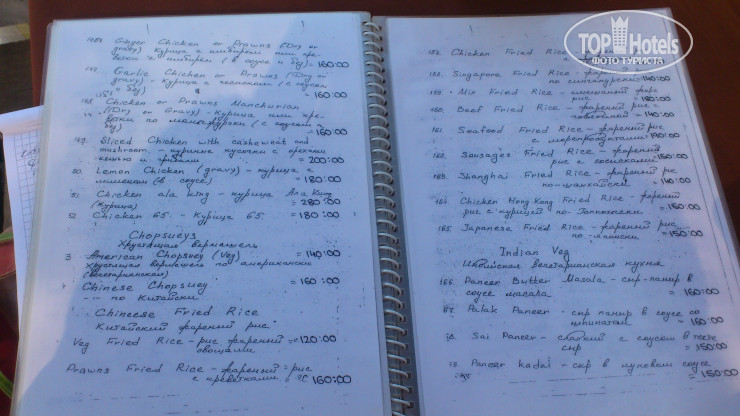 Ginger Chicken or Prawns (Dry or
gravy) Курица с имбирем или кре-
ветки с имбирем (в соусе и без) = 160:00
Garlic Chicken or Prawns (Dry or
gravy) - Курица с чесноком (с соусом
и без) = 160:00
148 Chicken or Prawns Manchurian
(Dry or Gravy) - Курица или кре-
ветки по манчжурски (с соусом и
без) = 160:00
149 Sliced Chicken with cashewnut and
mushroom - куриные кусочки с орехами
кешью и грибами = 200:00
50. Lemon Chicken (gravy) - курица с
лимоном (в соусе) = 180:00
51. Chicken ala king - курица Ала Кинг
(Курица) = 280:00
52 Chicken 65. - Курица 65. = 180:00
Chopsueys
Хрустящая вермешель
3 American Chopsuey (Veg) = 140:00
хрустящая вермешель по американски
(вегетарианская)
Chinese Chopsuey = 160:00
-- по Китайски
Chineese Fried Rice
Китайский жареный рис
Veg Fried Rice - рис жареный с = 120:00
овощами
Prawns Fried Rice - жареный рис
с креветками = 160:00
TOP Hotels
ФОТО ТУРИСТА
Chicken Fried Rice -
Singapore Fried Rice -
по сингапурски 140:00
159. Mix Fried Rice - смешаный жаре
рис = 180:00
160. Beef Fried Rice - жареный рис с
говядиной = 140:00
161. Seafood Fried Rice - жареный рис
с морепродуктами
162. Sausages Fried Rice - жареный
рис с сосисками 150:00
163. Shanghai Fried Rice - жареный рис
по-шанхайски. 140:00
164. Chicken Hong Kong Fried Rice - жареный
рис с курицей по-Гонконгски = 160:00
165. Japanese Fried Rice - жареный рис
по-японски. = 150:00
Indian Veg
Индийская вегетарианская кухня
166. Paneer Butter Masala - сыр-панир в
соусе масала = 160:00
Palak Paneer - сыр панир в соусе со
шпинатом = 160:00
Sai Paneer - сладкий с соусом в тесте
сыр = 150:00
Paneer kadai - сыр в луковом соусе
= 150:00